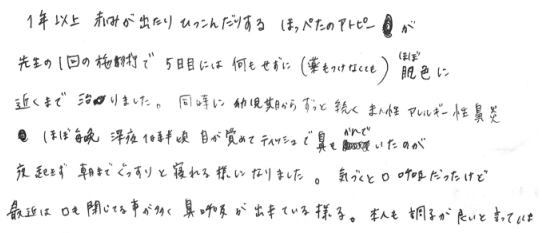 1年以上 赤みが出たりひっこんだりする ほっぺたのアトピーが
先生の1回の施術で 5日目には何もせずに (薬もつけなくても) ほぼ 肌色に
近くまで 治りました。 同時に 幼児期からずっと続く 性アレルギー性鼻炎
ほぼ毎晩 深夜 頃 目が覚めて ティッシュで鼻を かんで いたのが
夜起きず 朝までぐっすりと寝れる様になりました。 気づくと口呼吸だったけど
最近は 口も閉じてる事が多く 鼻呼吸が出来ている様る。 本人も 調子が良いと言ってい